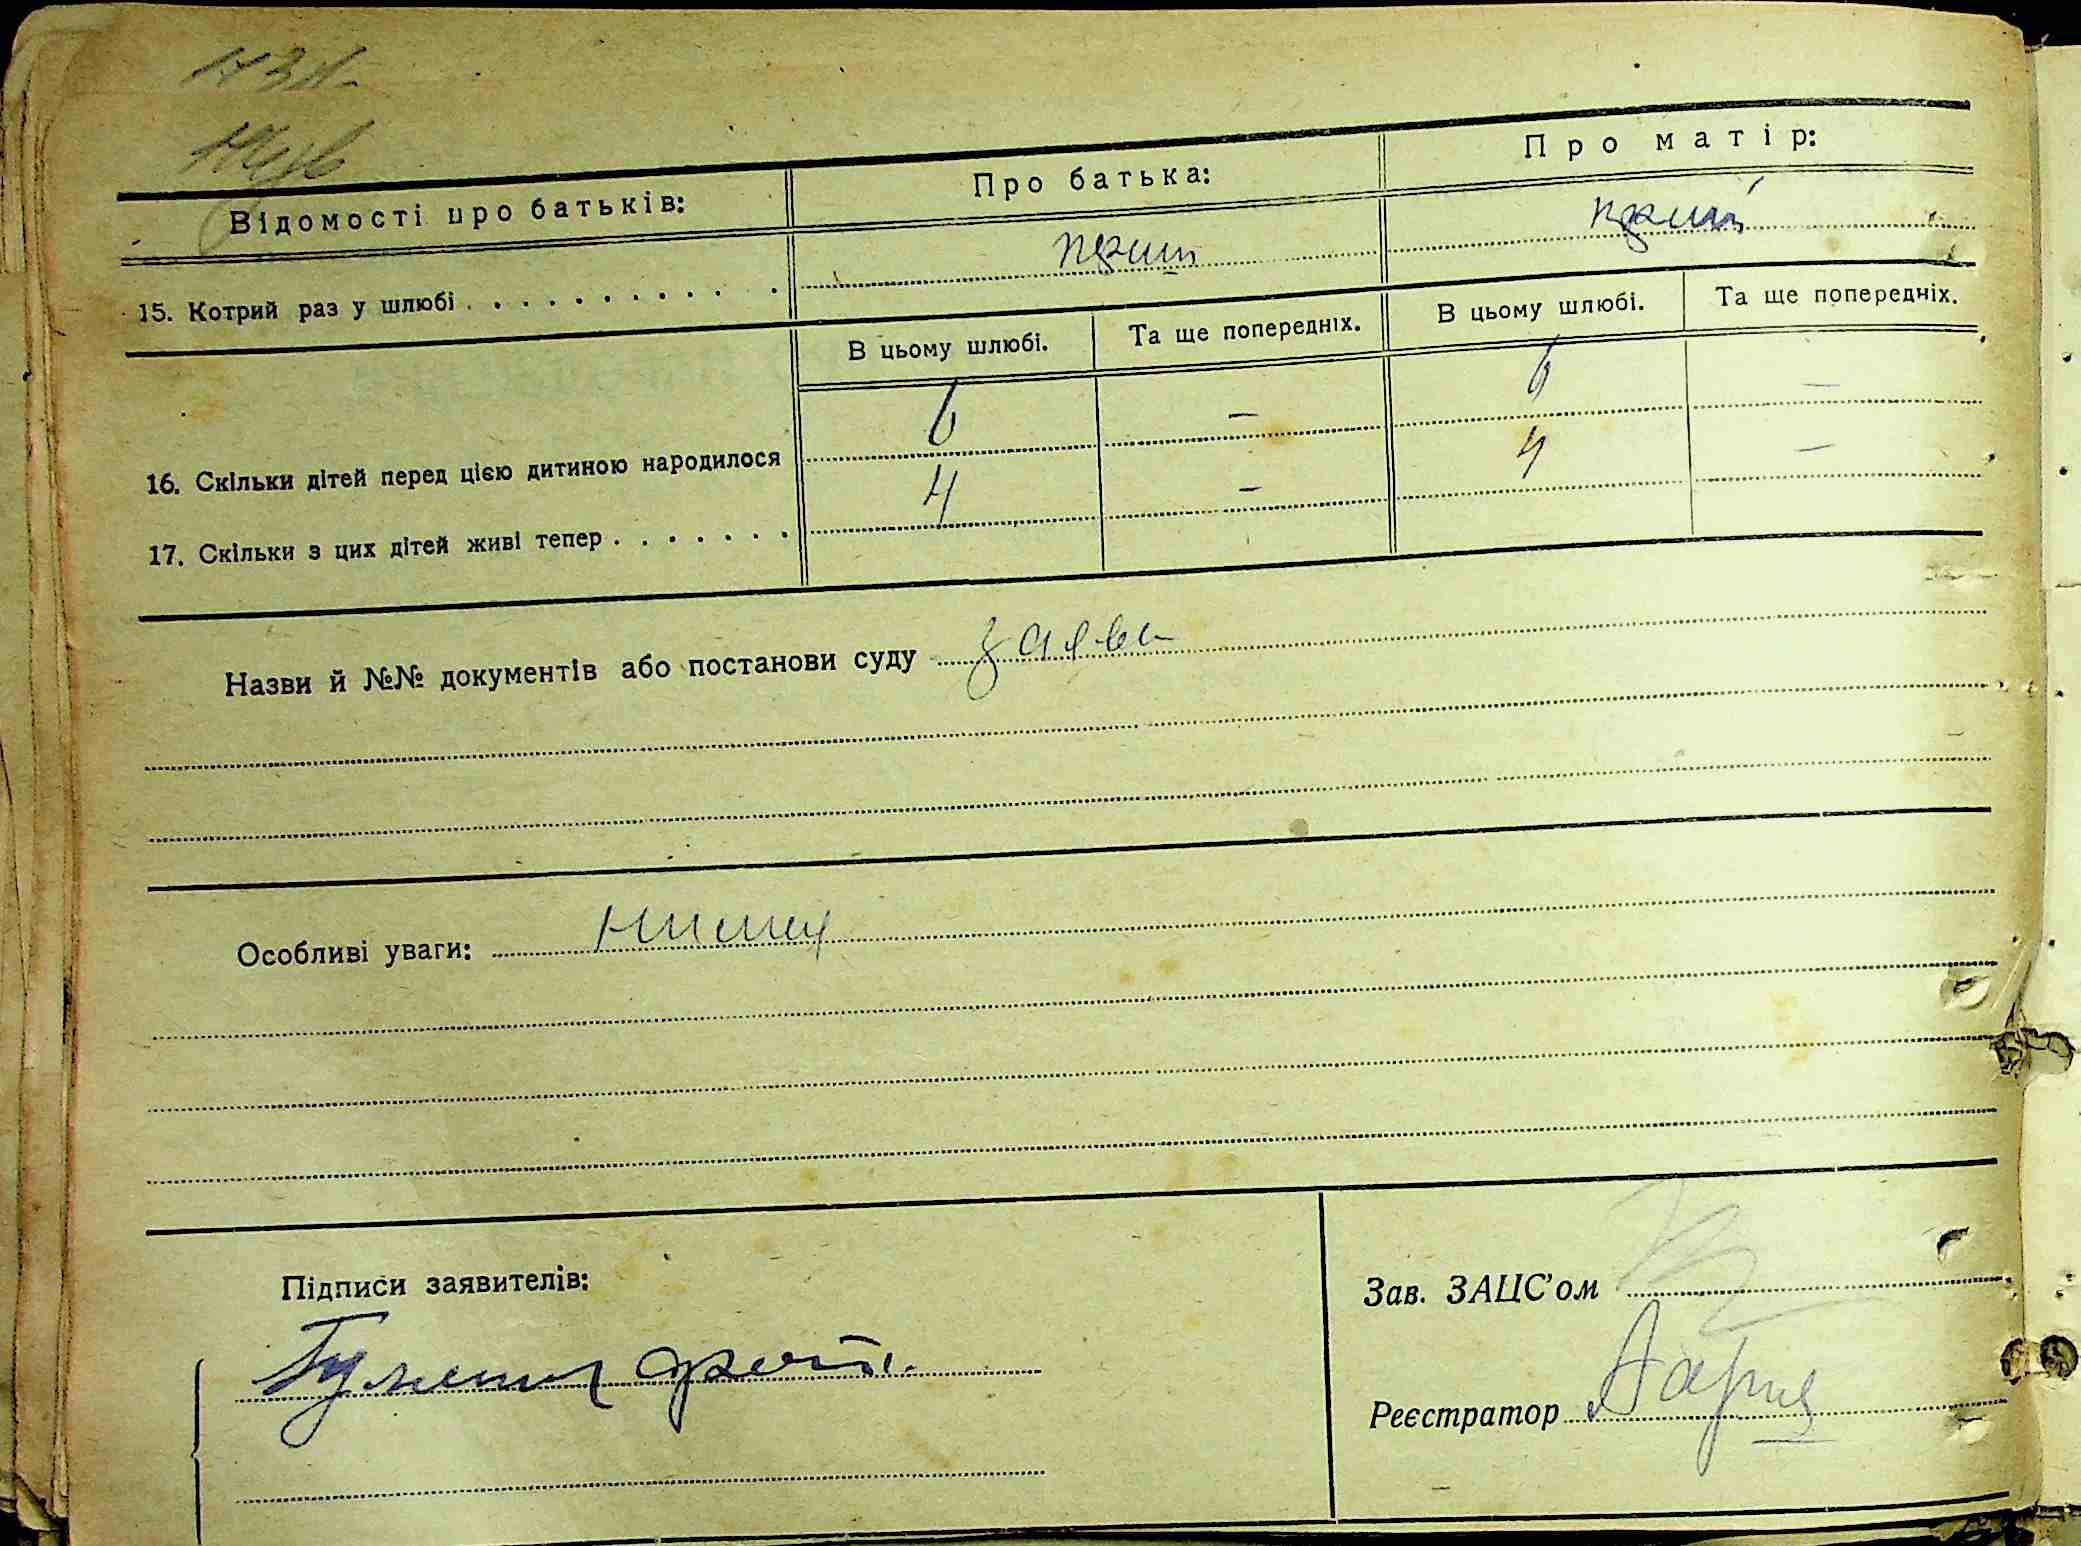 Відомості про батьків:
Про батька:
Про матір:
15. Котрий раз у шлюбі . . . . . . . . . . . .
В цьому шлюбі.
Та ще попередніх.
В цьому шлюбі.
Та ще попередніх.
16. Скільки дітей перед цією дитиною народилося 6 – 6 –
17. Скільки з цих дітей живі тепер . . . . . . . 4 – 4 –
Назви й №№ документів або постанови суду заява
Особливі уваги:
Підписи заявителів:
Зав. ЗАЦС’ом
Реєстратор